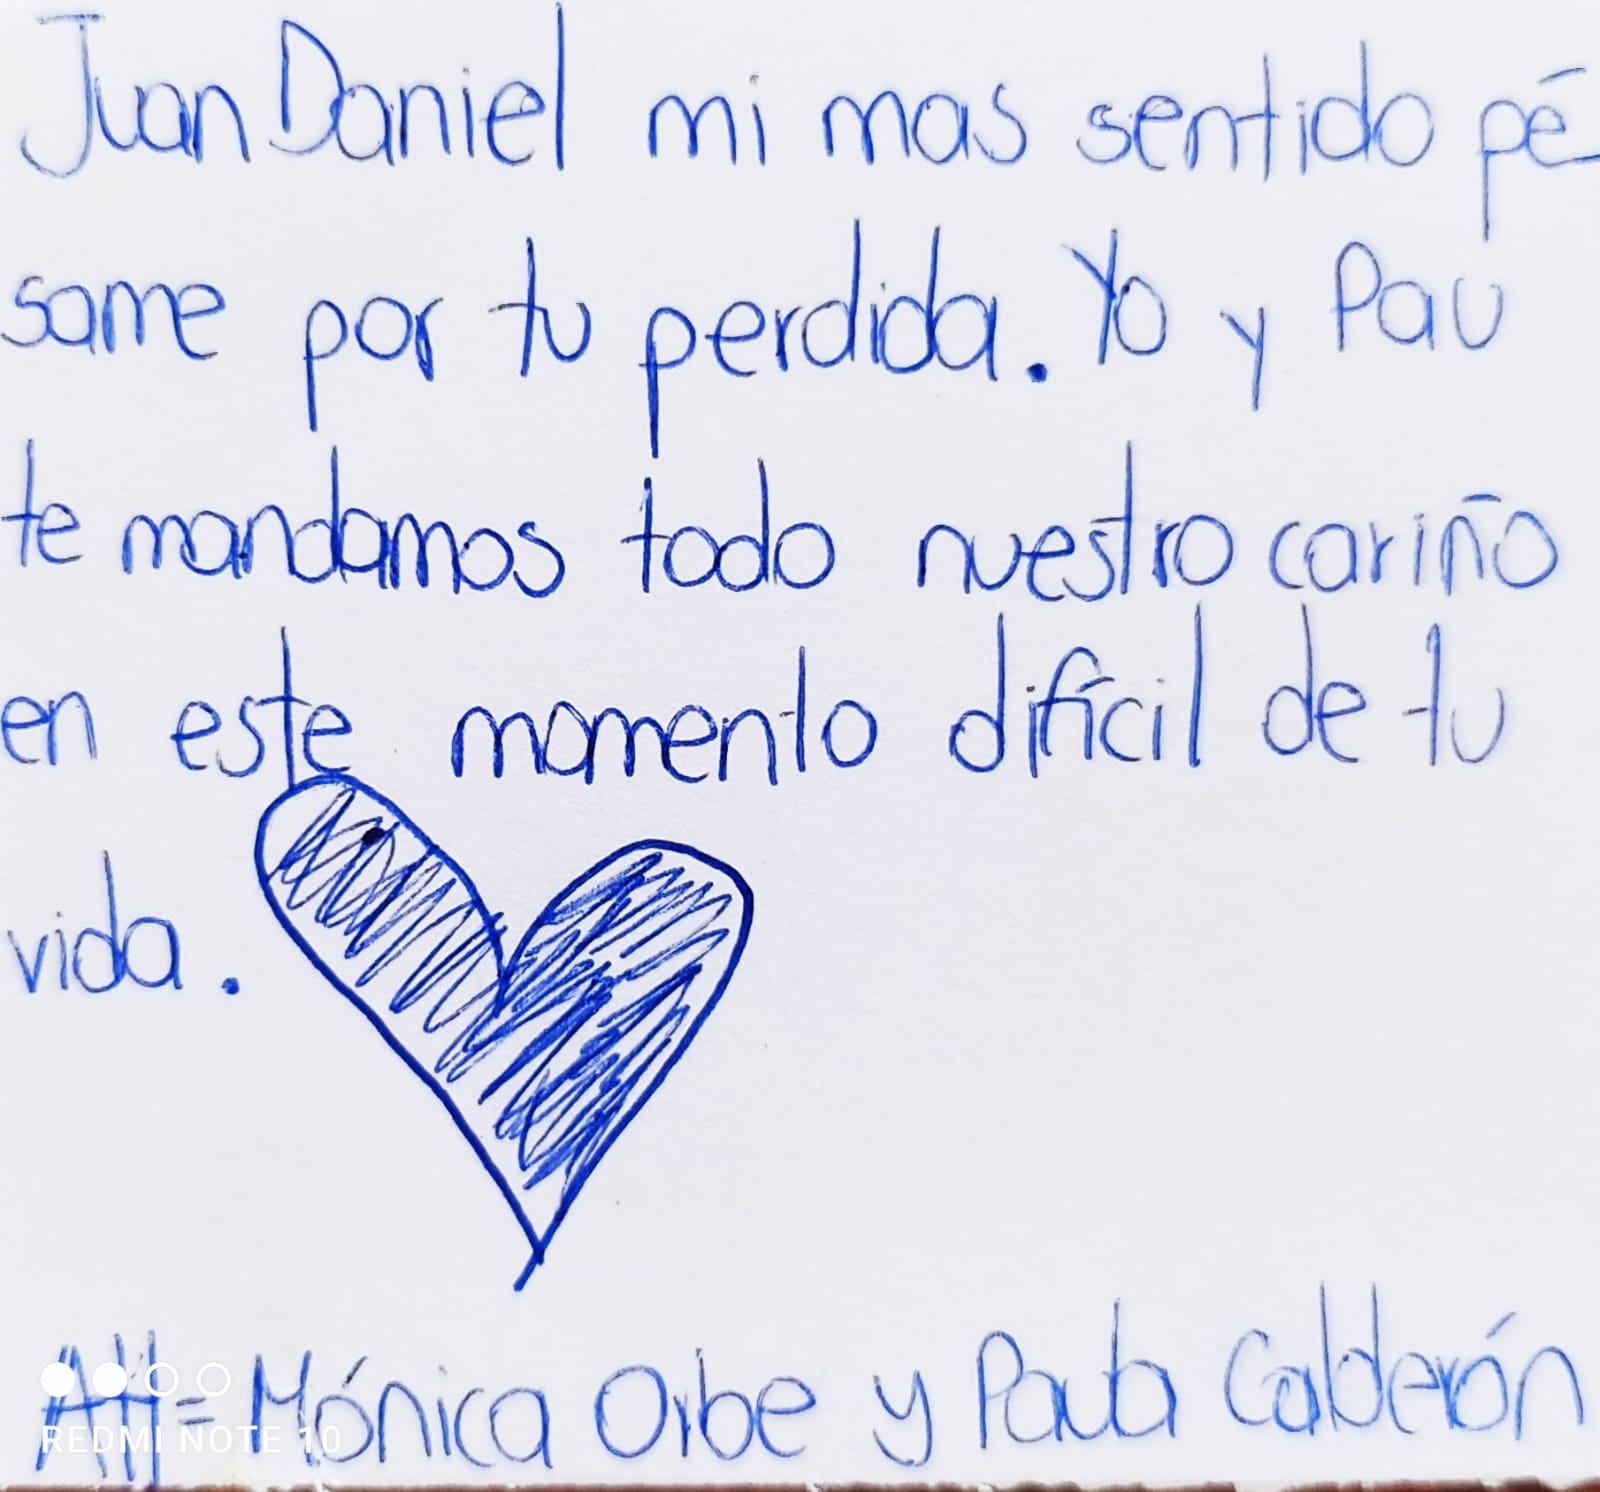 Juan Daniel mi mas sentido pé
same por tu perdida. Yo y Pau
te mandamos todo nuestro cariño
en este momento difícil de tu
vida.
Att= Mónica Orbe y Paula Calderón
REDMI NOTE 10